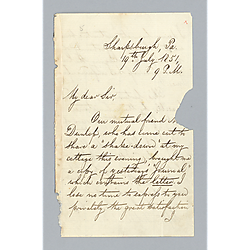 Sharpsburgh, Pa.
19th July, 1851,
9 P.M.
My dear Sir,
Our mutual friend
Dunlop, who has come out to
share a 'shake down' at my
cottage this evening, brought me
a copy of yesterdays' Journal
which contains the letter. I
lose no time to express to you
privately, the great satisfaction